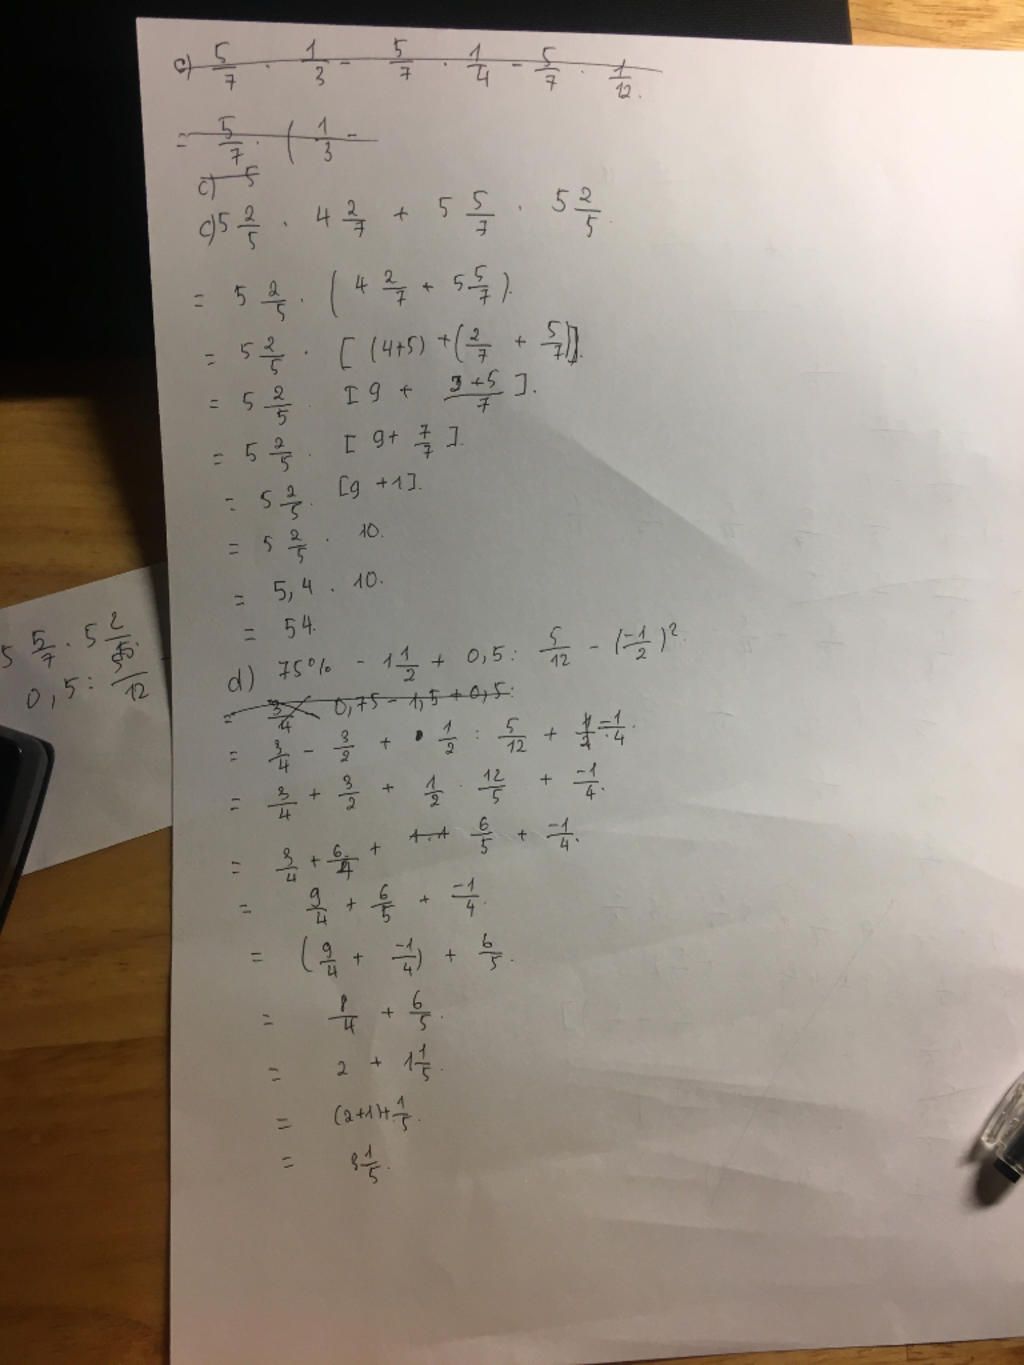 c) 5/7 · 1/3 - 5/7 · 1/4 - 5/7 · 1/12.
= 5/7 · ( 1/3 -
c) 5
c) 5 2/5 · 4 2/7 + 5 5/7 · 5 2/5.
= 5 2/5 · ( 4 2/7 + 5 5/7 ).
= 5 2/5 · [ (4+5) + ( 2/7 + 5/7 ) ].
= 5 2/5 · [ 9 + (2+5)/7 ].
= 5 2/5 · [ 9 + 7/7 ].
= 5 2/5 · [9 +1].
= 5 2/5 · 10.
= 5,4 · 10.
= 54.
5 5/7 · 5 2/5.
0,5 : 5/12 -
d) 75% - 1 1/2 + 0,5 : 5/12 - (-1/2)².
= 3/4 0,75 - 1,5 + 0,5 :
= 3/4 - 3/2 + 1/2 : 5/12 + -1/4.
= 3/4 + 3/2 + 1/2 · 12/5 + -1/4.
= 3/4 + 6/4 + 6/5 + -1/4.
= 9/4 + 6/5 + -1/4.
= ( 9/4 + -1/4 ) + 6/5.
= 8/4 + 6/5.
= 2 + 1 1/5.
= (2+1) + 1/5.
= 3 1/5.